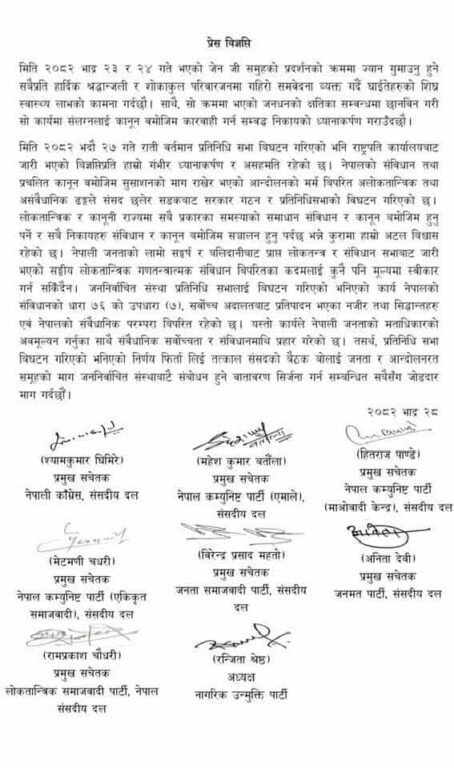 प्रेस विज्ञप्ति
मिति २०८२ भाद्र २३ र २४ गते भएको जेन जी समुहको प्रदर्शनको क्रममा ज्यान गुमाउनु हुने
सबैप्रति हार्दिक श्रद्धान्जली र शोकाकुल परिवारजनमा गहिरो समवेदना व्यक्त गर्दै घाईतेहरुको शिघ्र
स्वास्थ्य लाभको कामना गर्दछौं। साथै, सो क्रममा भएको जनधनको क्षतिका सम्बन्धमा छानविन गरी
सो कार्यमा संलग्नलाई कानून बमोजिम कारबाही गर्न सम्बद्ध निकायको ध्यानाकर्षण गराउँदछौं।
मिति २०८२ भदौ २७ गते राती वर्तमान प्रतिनिधि सभा विघटन गरिएको भनि राष्ट्रपति कार्यालयबाट
जारी भएको विज्ञप्तिप्रति हाम्रो गंभीर ध्यानाकर्षण र असहमति रहेको छ। नेपालको संविधान तथा
प्रचलित कानून बमोजिम सुसाशनको माग राखेर भएको आन्दोलनको मर्म विपरित अलोकतान्त्रिक तथा
असंवैधानिक ढङ्गले संसद छलेर सडकबाट सरकार गठन र प्रतिनिधिसभाको विघटन गरिएको छ।
लोकतान्त्रिक र कानूनी राज्यमा सबै प्रकारका समस्याको समाधान संविधान र कानून बमोजिम हुनु
पर्ने र सबै निकायहरु संविधान र कानून बमोजिम सञ्चालन हुनु पर्दछ भन्ने कुरामा हाम्रो अटल विश्वास
रहेको छ। नेपाली जनताको लामो सङ्घर्ष र बलिदानीबाट प्राप्त लोकतन्त्र र संविधान सभाबाट जारी
भएको सङ्घीय लोकतान्त्रिक गणतन्त्रात्मक संविधान विपरितका कदमलाई कुनै पनि मूल्यमा स्वीकार
गर्न सकिँदैन। जननिर्वाचित संस्था प्रतिनिधि सभालाई विघटन गरिएको भनिएको कार्य नेपालको
संविधानको धारा ७६ को उपधारा (७), सर्वोच्च अदालतबाट प्रतिपादन भएका नजीर तथा सिद्धान्तहरु
एवं नेपालको संवैधानिक परम्परा विपरित रहेको छ। यस्तो कार्यले नेपाली जनताको मताधिकारको
अवमूल्यन गर्नुका साथै संवैधानिक सर्वोच्चता र संविधानमाथि प्रहार गरेको छ। तसर्थ, प्रतिनिधि सभा
विघटन गरिएको भनिएको निर्णय फिर्ता लिई तत्काल संसदको बैठक बोलाई जनता र आन्दोलनरत
समूहको माग जननिर्वाचित संस्थाबाटै संबोधन हुने वातावरण सिर्जना गर्न सम्बन्धित सबैसँग जोडदार
माग गर्दछौं।
२०८२ भाद्र २८
(श्यामकुमार घिमिरे)
प्रमुख सचेतक
नेपाली काँग्रेस, संसदीय दल
(महेश कुमार बर्तौला)
प्रमुख सचेतक
नेपाल कम्युनिष्ट पार्टी (एमाले),
संसदीय दल
(हितराज पाण्डे)
प्रमुख सचेतक
नेपाल कम्युनिष्ट पार्टी
(माओवादी केन्द्र), संसदीय दल
(मेटमणी चधरी)
प्रमुख सचेतक
नेपाल कम्युनिष्ट पार्टी (एकिकृत
समाजवादी), संसदीय दल
(विरेन्द्र प्रसाद महतो)
प्रमुख सचेतक
जनता समाजवादी पार्टी, संसदीय
दल
(अनिता देवी)
प्रमुख सचेतक
जनमत पार्टी, संसदीय दल
(रामप्रकाश चौधरी)
प्रमुख सचेतक
लोकतान्त्रिक समाजवादी पार्टी, नेपाल
संसदीय दल
(रन्जिता श्रेष्ठ)
अध्यक्ष
नागरिक उन्मुक्ति पार्टी